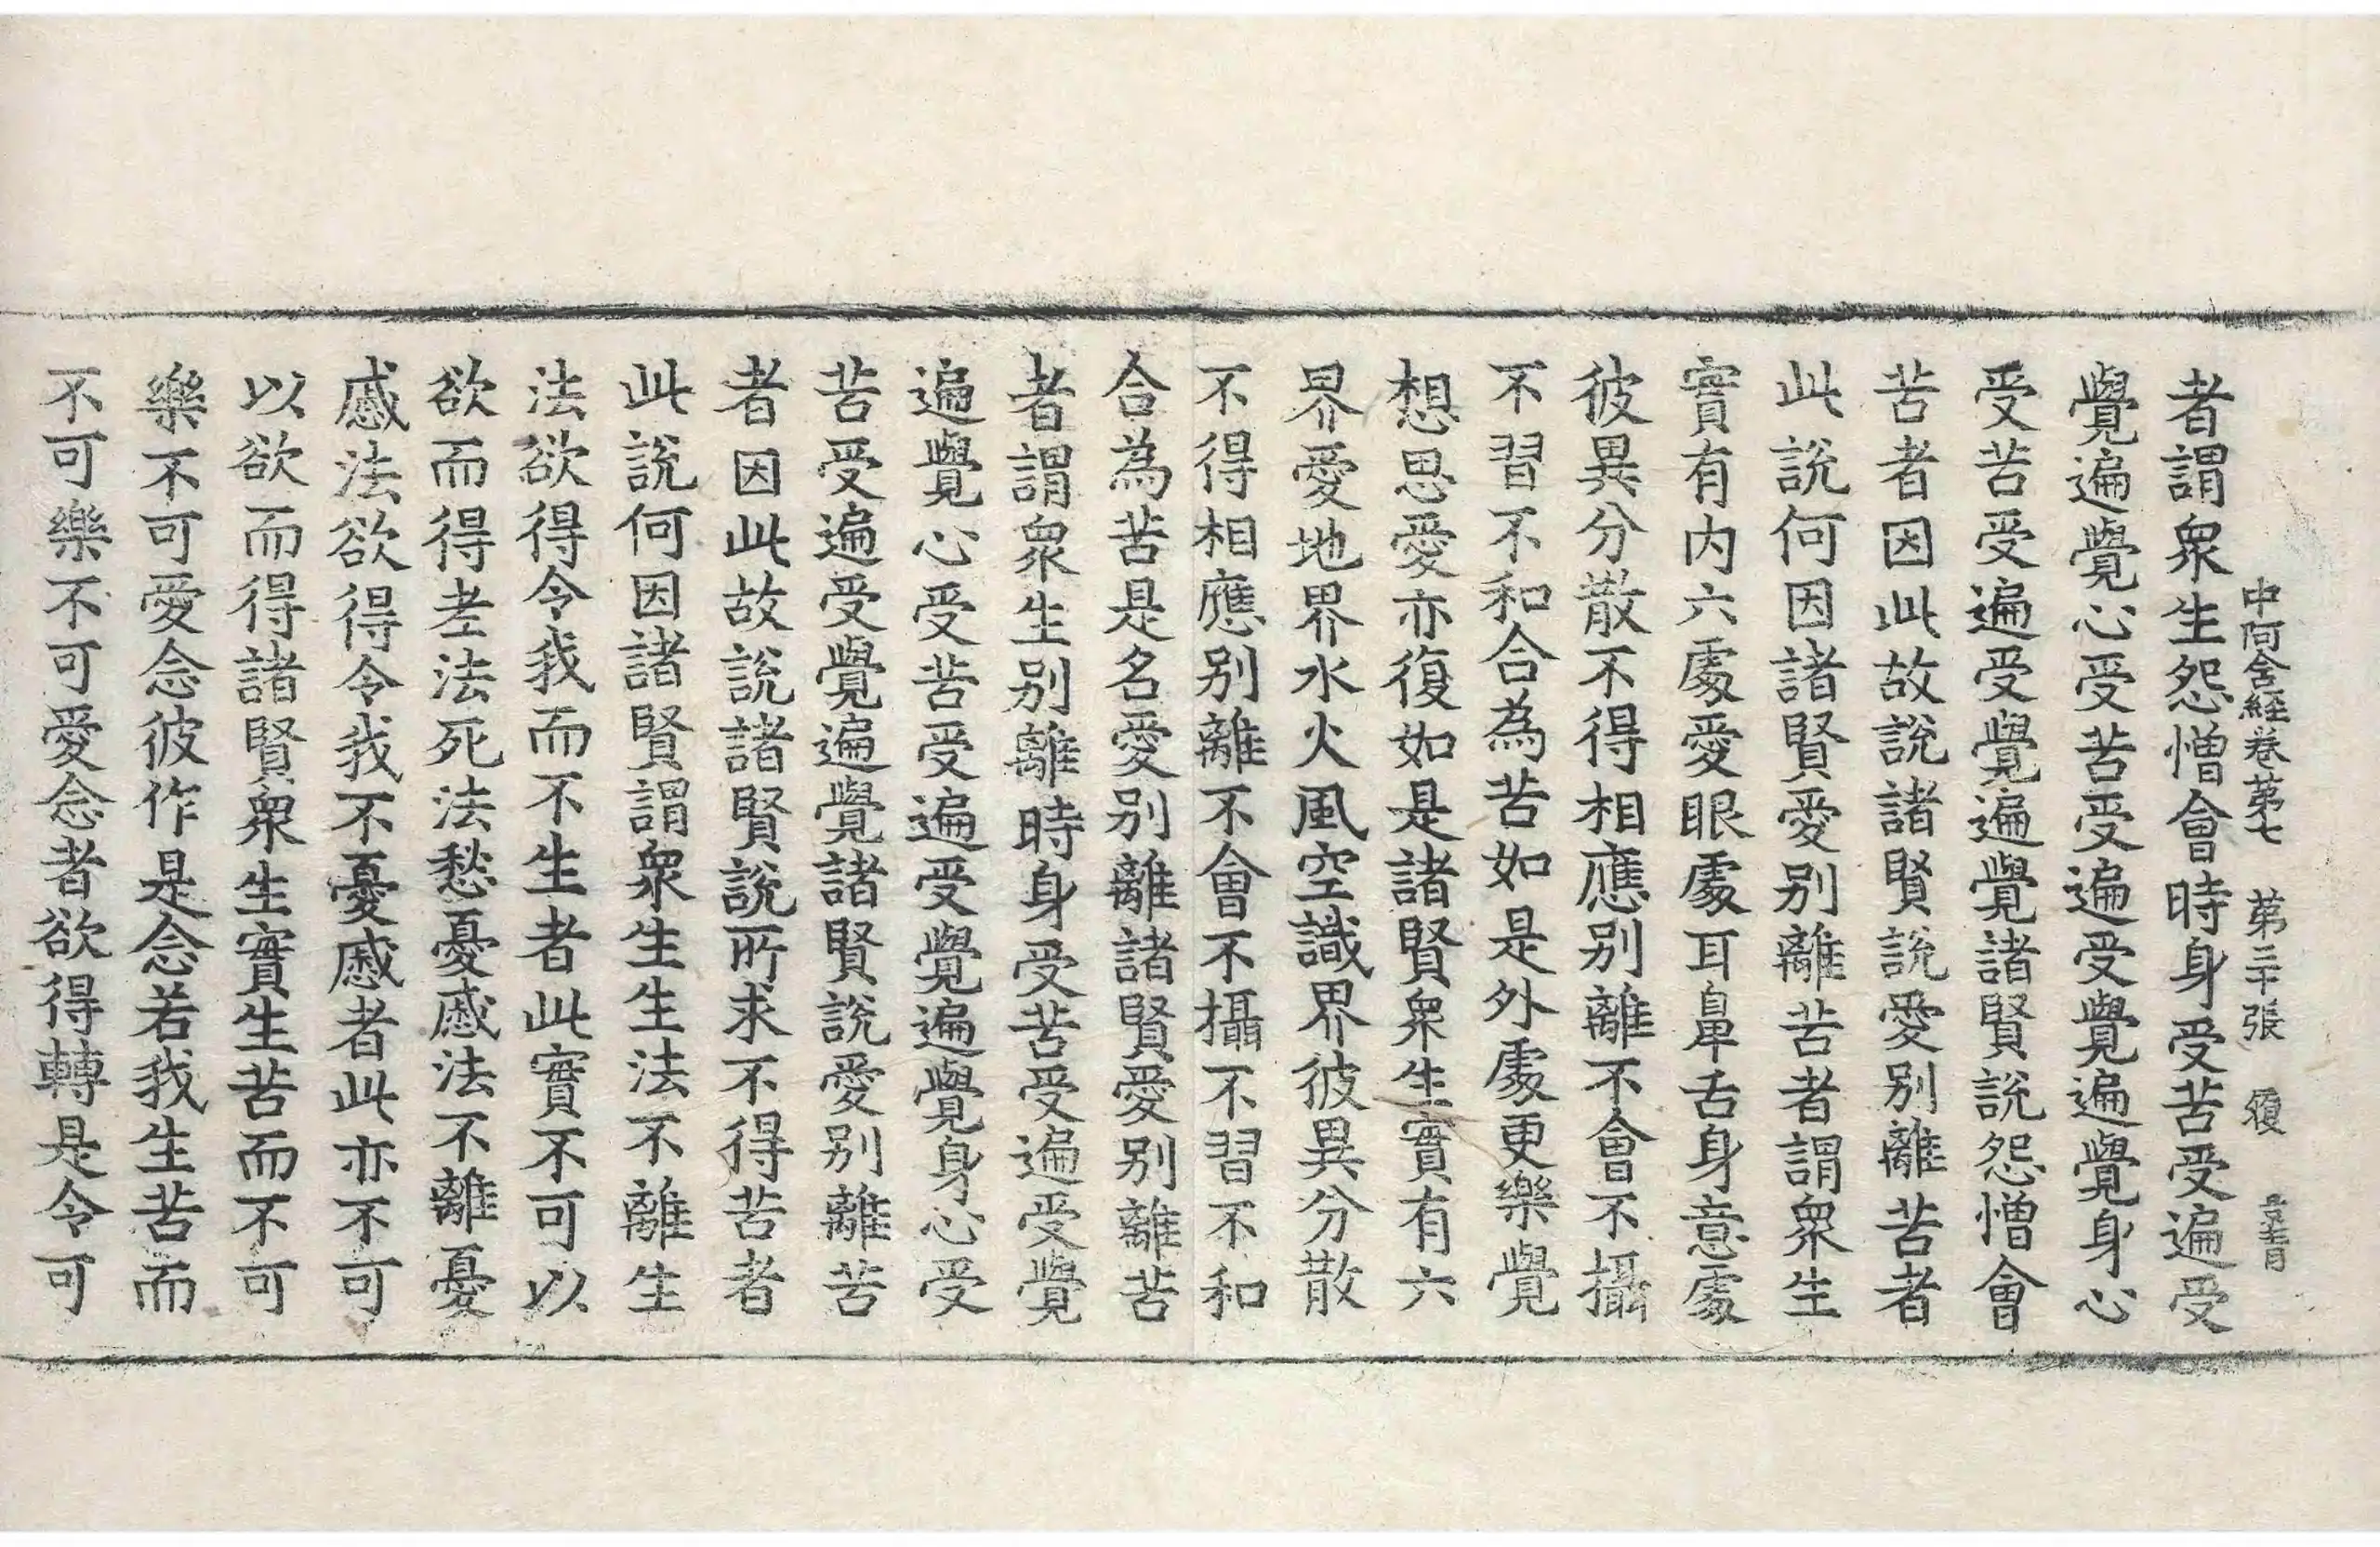 中阿含經卷第七 第三十張 履
者謂衆生怨憎會時身受苦受遍受
覺遍覺心受苦受遍受覺遍覺身心
受苦受遍受覺遍覺諸賢說怨憎會
苦者因此故說諸賢說愛别離苦者
此說何因諸賢愛别離苦者謂衆生
實有内六處愛眼處耳鼻舌身意處
彼異分散不得相應别離不會不攝
不習不和合為苦如是外處更樂覺
想思愛亦復如是諸賢衆生實有六
界愛地界水火風空識界彼異分散
不得相應别離不會不攝不習不和
合為苦是名愛别離諸賢愛别離苦
者謂衆生别離時身受苦受遍受覺
遍覺心受苦受遍受覺遍覺身心受
苦受遍受覺遍覺諸賢說愛别離苦
者因此故說諸賢說所求不得苦者
此說何因諸賢謂衆生生法不離生
法欲得令我而不生者此實不可以
欲而得老法死法愁憂慼法不離憂
慼法欲得令我不憂慼者此亦不可
以欲而得諸賢衆生實生苦而不可
樂不可愛念彼作是念若我生苦而
不可樂不可愛念者欲得轉是令可